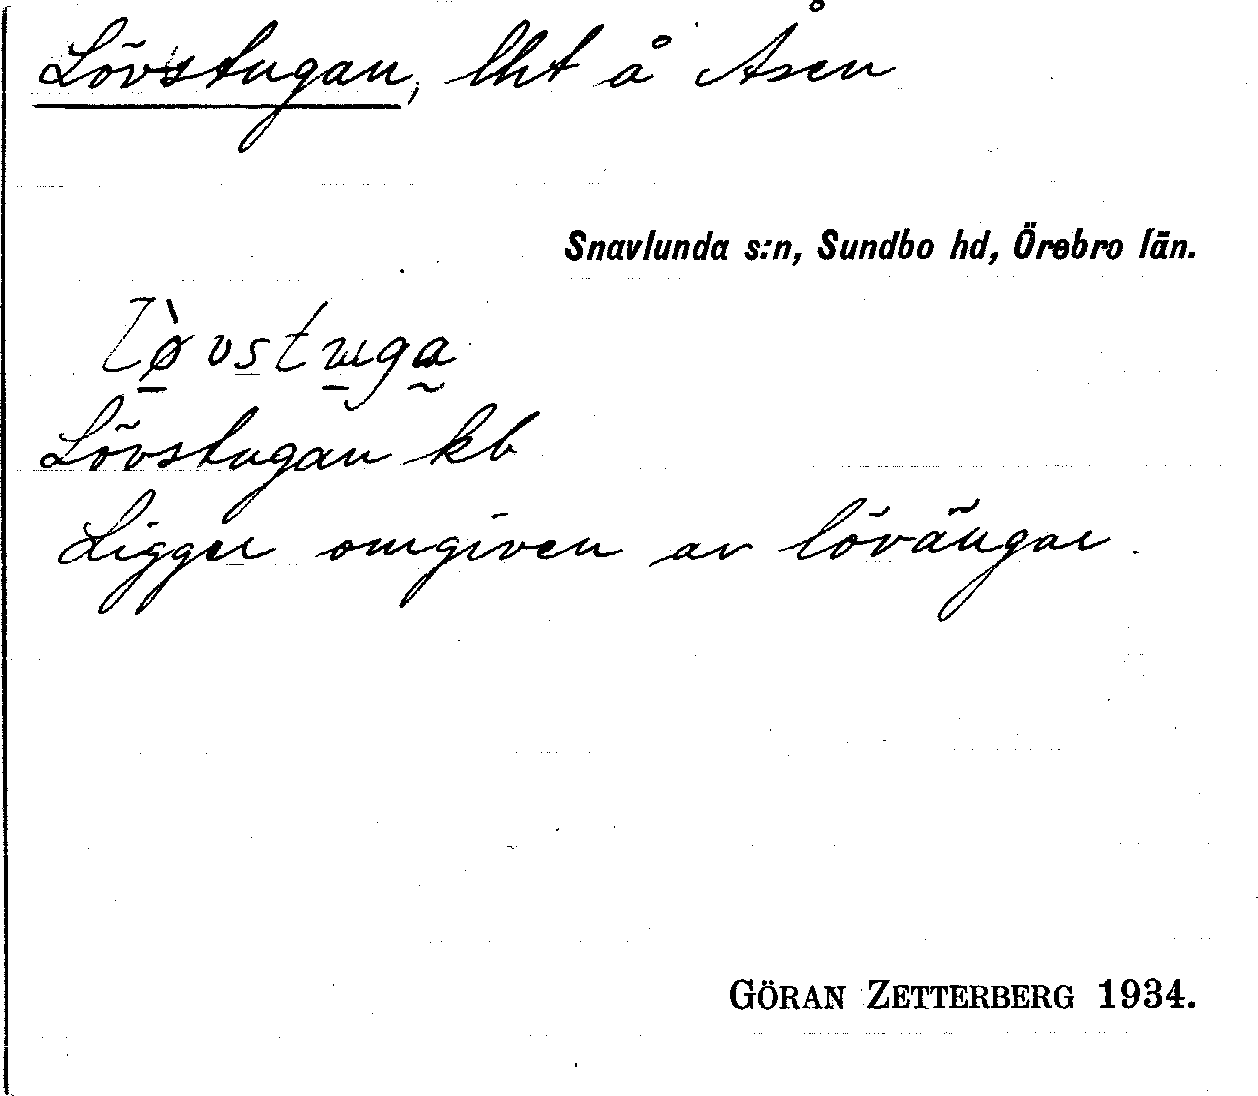 Lövstugan, lht å Åsen
Snavlunda s:n, Sundbo hd, Örebro län.
lø̀vstuga
Lövstugan kb
Ligger omgiven av lövängar.
GÖRAN ZETTERBERG 1934.